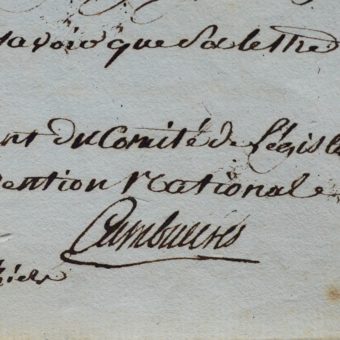 savoir que Sa lettre
ent du Comité de Législ
vention Nationale
Cambacérès